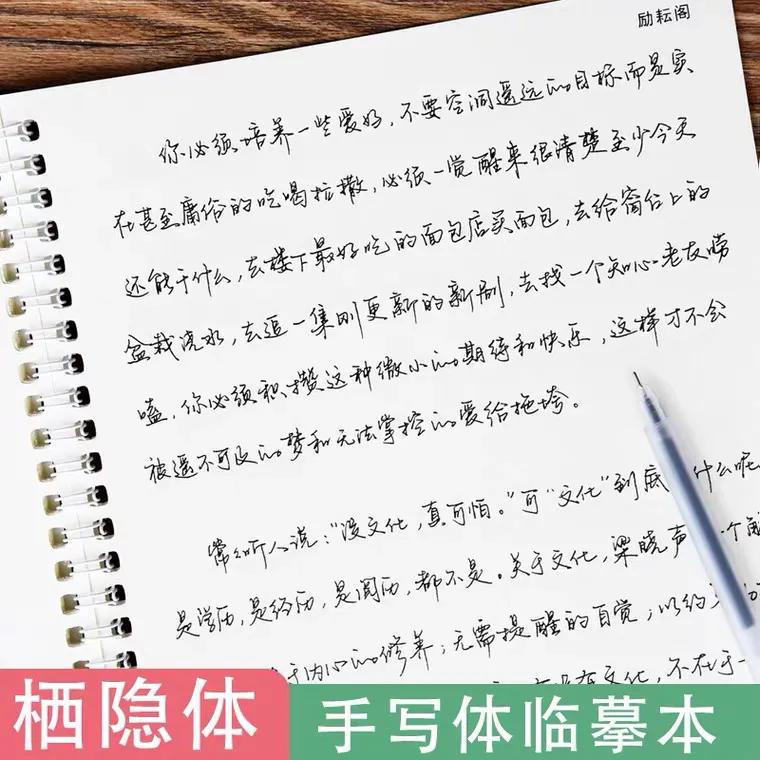 励耘阁
你必须培养一些爱好，不要空洞遥远的目标而是实
在甚至庸俗的吃喝拉撒，必须一觉醒来很清楚至少今天
还能干什么，去楼下最好吃的面包店买面包，去给窗台上的
盆栽浇水，去追一集刚更新的新剧，去找一个知心老友唠
嗑，你必须积攒这种微小的期待和快乐，这样才不会
被遥不可及的梦和无法掌控的爱给拖垮。
常听人说："没文化，真可怕。"可"文化"到底 什么呢
是学历，是经历，是阅历，都不是。关于文化，梁晓声 一个
于内心的修养；无需提醒的自觉；以约
没有文化，不在于一
栖隐体
手写体临摹本